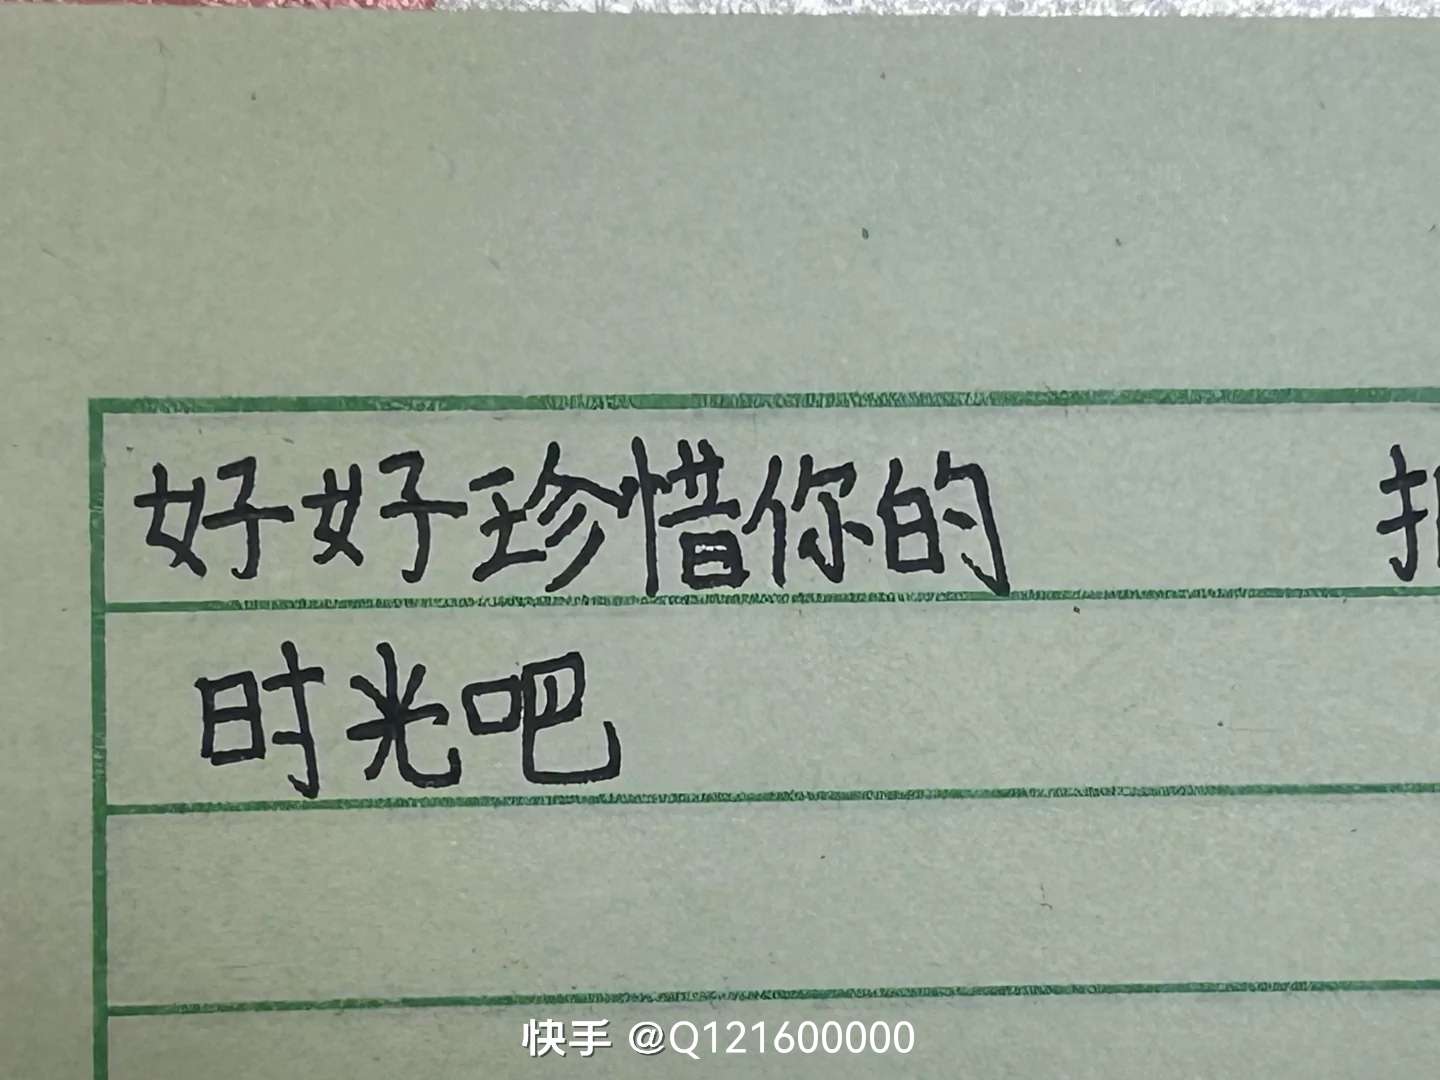 好好珍惜你的
时光吧
快手 @Q121600000